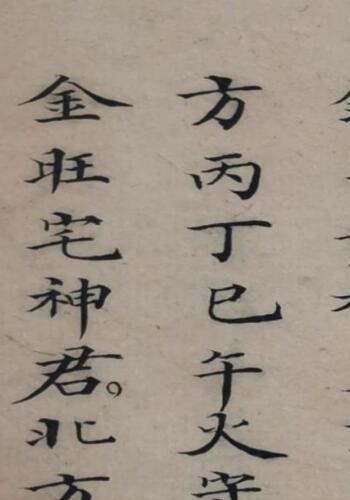 方丙丁巳午火
金旺宅神君。北方